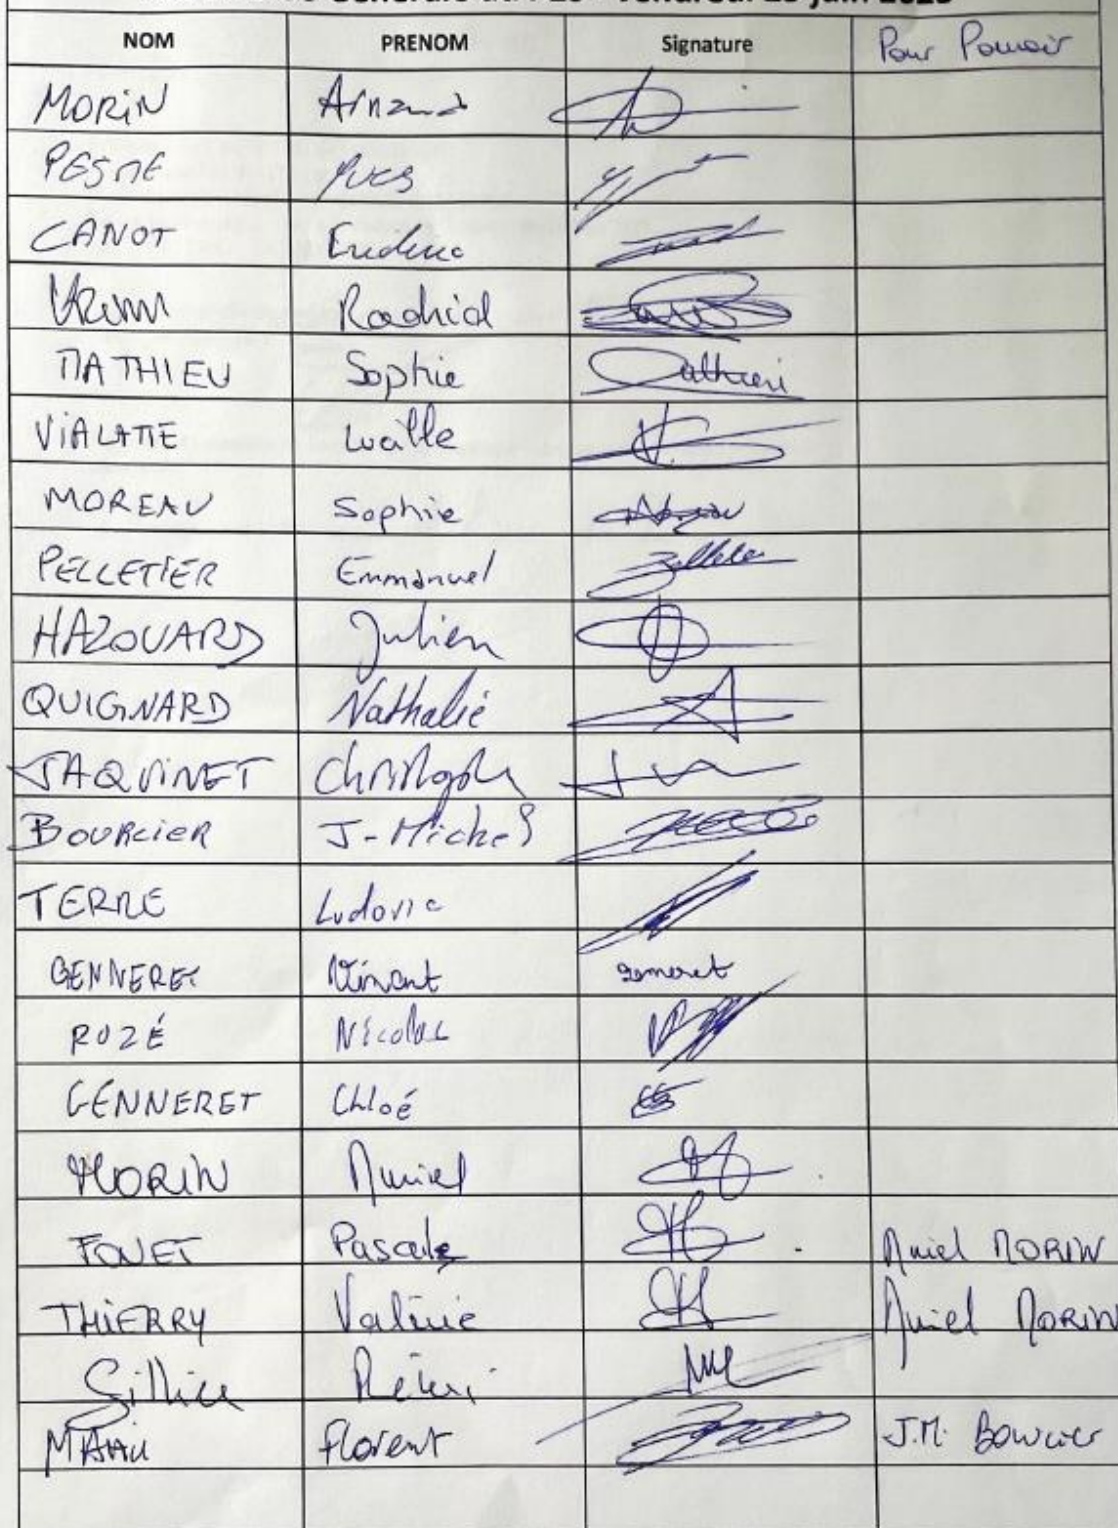 NOM PRENOM Signature Pour Pouvoir
MORIN Arnaud
PESME Yves
CANOT Frederic
KRIMI Rachid
MATHIEU Sophie Mathieu
VIALATTE Lucille
MOREAU Sophie Moreau
PELLETIER Emmanuel Pelletier
HAZOUARD Julien
QUIGNARD Nathalie
JAQUINET Christophe
BOURCIER J-Michel
TERRE Ludovic
GENNERET Vincent Genneret
ROZÉ Nicolas
GENNERET Chloé
MORIN Muriel
Pascale Muriel MORIN
THIERRY Valérie Muriel MORIN
Rémi
Florent J.M. Bourcier